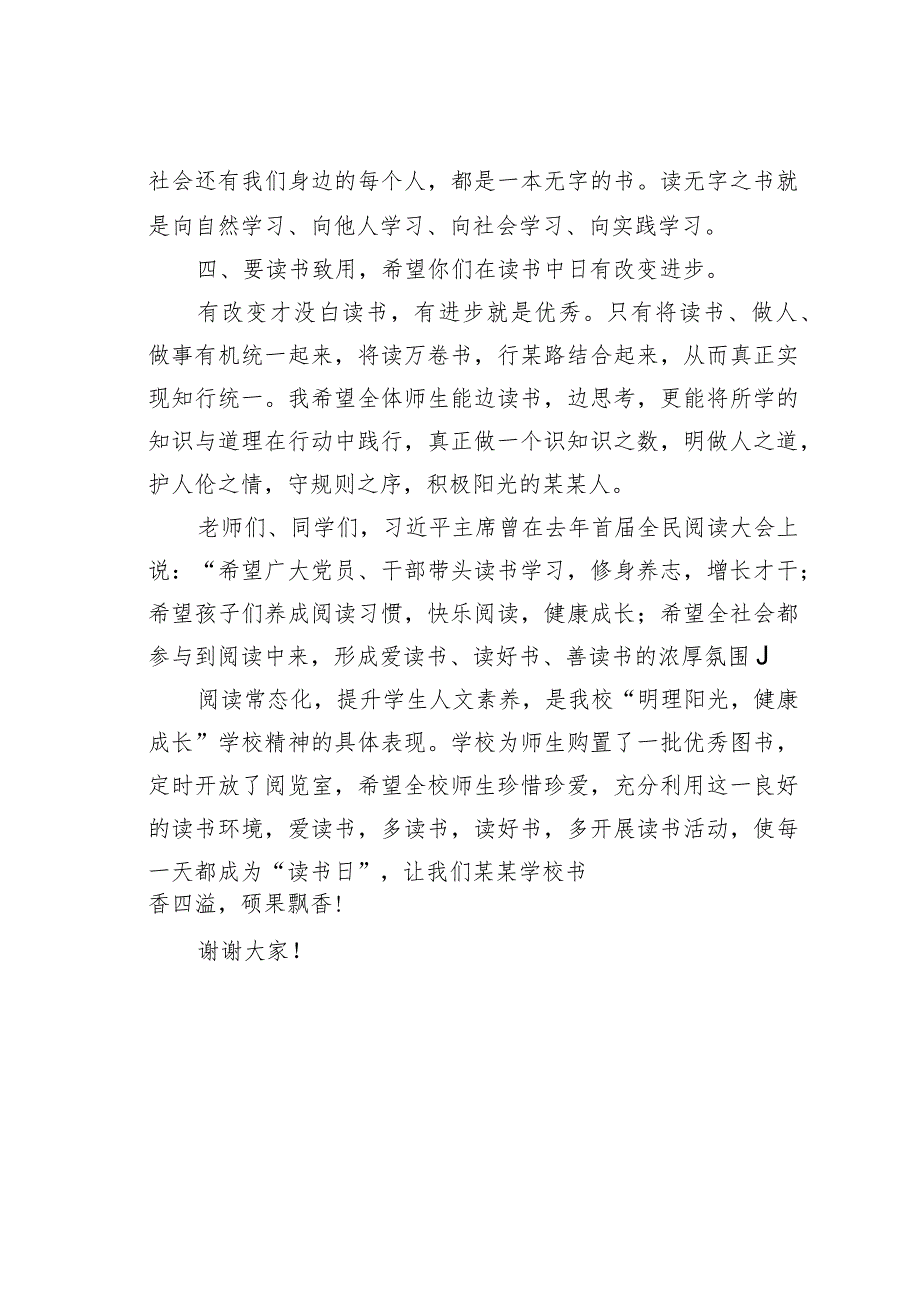 社会还有我们身边的每个人，都是一本无字的书。读无字之书就
是向自然学习、向他人学习、向社会学习、向实践学习。
四、要读书致用，希望你们在读书中日有改变进步。
有改变才没白读书，有进步就是优秀。只有将读书、做人、
做事有机统一起来，将读万卷书，行某路结合起来，从而真正实
现知行统一。我希望全体师生能边读书，边思考，更能将所学的
知识与道理在行动中践行，真正做一个识知识之数，明做人之道，
护人伦之情，守规则之序，积极阳光的某某人。
老师们、同学们，习近平主席曾在去年首届全民阅读大会上
说：“希望广大党员、干部带头读书学习，修身养志，增长才干；
希望孩子们养成阅读习惯，快乐阅读，健康成长；希望全社会都
参与到阅读中来，形成爱读书、读好书、善读书的浓厚氛围J
阅读常态化，提升学生人文素养，是我校“明理阳光，健康
成长”学校精神的具体表现。学校为师生购置了一批优秀图书，
定时开放了阅览室，希望全校师生珍惜珍爱，充分利用这一良好
的读书环境，爱读书，多读书，读好书，多开展读书活动，使每
一天都成为“读书日”，让我们某某学校书
香四溢，硕果飘香!
谢谢大家！